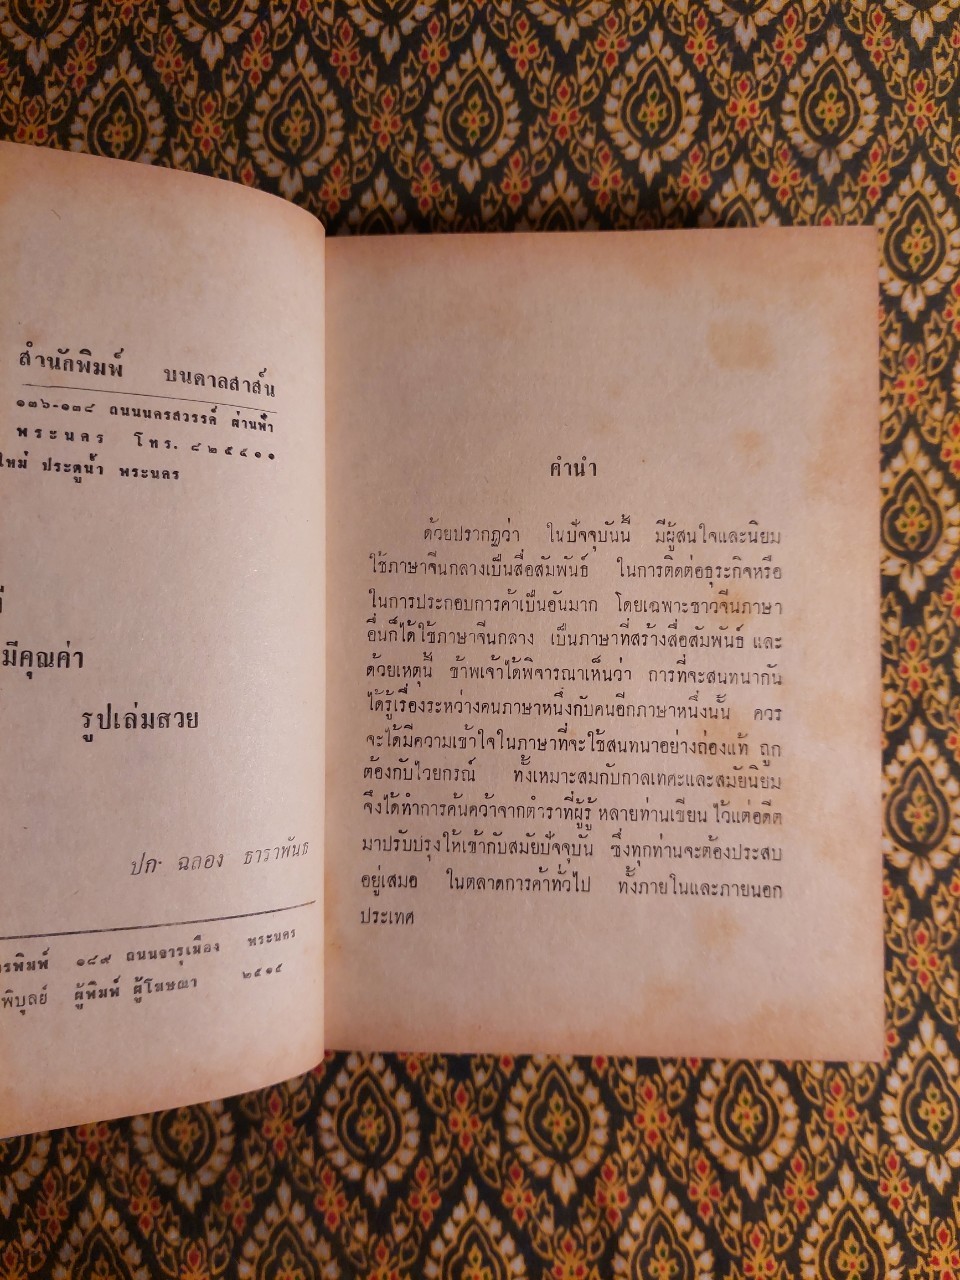 สำนักพิมพ์ บนดาลสาส์น
๑๓๖-๑๓๘ ถนนนครสวรรค์ ผ่านฟ้า
พระนคร โทร. ๘๒๕๕๑๑
ใหม่ ประตูน้ำ พระนคร
มีคุณค่า
รูปเล่มสวย
ปก. ฉลอง ธาราพันธ์
รพิมพ์ ๑๘๙ ถนนจารุเมือง พระนคร
พิบูลย์ ผู้พิมพ์ ผู้โฆษณา ๒๕๑๕
คำนำ
ด้วยปรากฏว่า ในปัจจุบันนี้ มีผู้สนใจและนิยม
ใช้ภาษาจีนกลางเป็นสื่อสัมพันธ์ ในการติดต่อธุระกิจหรือ
ในการประกอบการค้าเป็นอันมาก โดยเฉพาะชาวจีนภาษา
อื่นก็ได้ใช้ภาษาจีนกลาง เป็นภาษาที่สร้างสื่อสัมพันธ์ และ
ด้วยเหตุนี้ ข้าพเจ้าได้พิจารณาเห็นว่า การที่จะสนทนากัน
ได้รู้เรื่องระหว่างคนภาษาหนึ่งกับคนอีกภาษาหนึ่งนั้น ควร
จะได้มีความเข้าใจในภาษาที่จะใช้สนทนาอย่างถ่องแท้ ถูก
ต้องกับไวยกรณ์ ทั้งเหมาะสมกับกาลเทศะและสมัยนิยม
จึงได้ทำการค้นคว้าจากตำราที่ผู้รู้ หลายท่านเขียน ไว้แต่อดีต
มาปรับปรุงให้เข้ากับสมัยปัจจุบัน ซึ่งทุกท่านจะต้องประสบ
อยู่เสมอ ในตลาดการค้าทั่วไป ทั้งภายในและภายนอก
ประเทศ